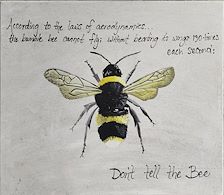 According to the laws of aerodynamics...
the bumble bee cannot fly without beating its wings 190 times
each second:
Don't tell the Bee